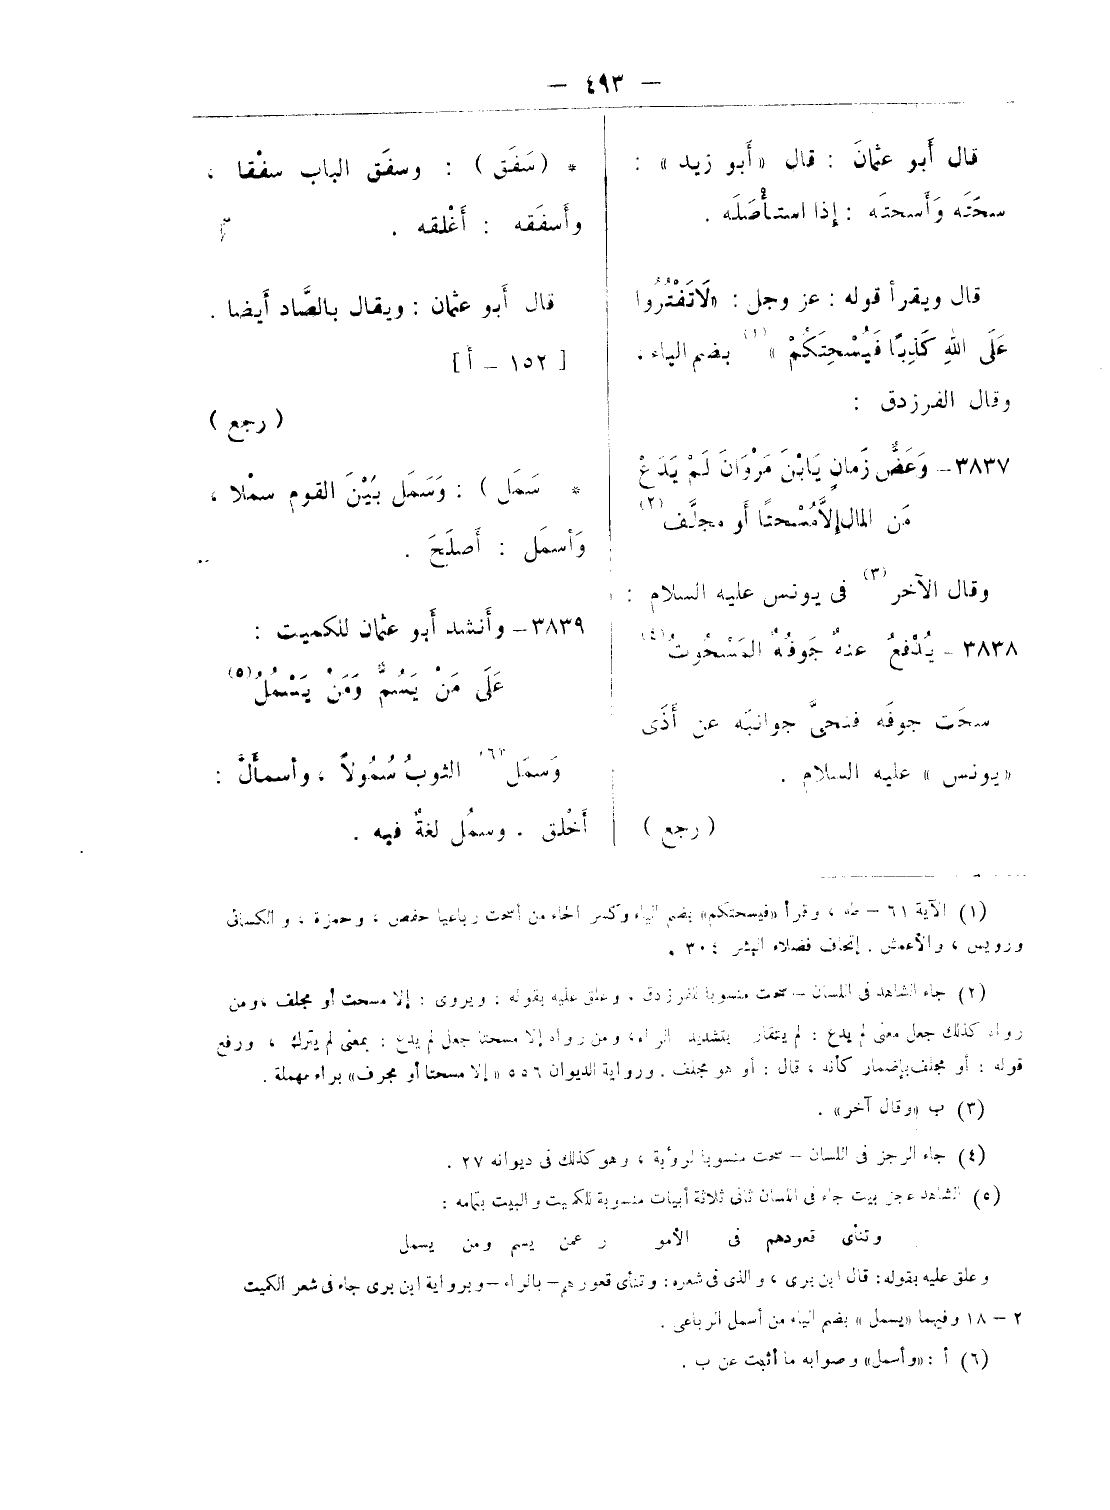 — ٤٩٣ —
قال أَبو عثمانَ : قال «أَبو زيد» :
سحَتَه وَأَسحتَه : إِذا استأْصَلَه .
قال ويقرأ قوله : عز وجل : «لَاتَفْتَرُوا
عَلَى اللهِ كَذِبًا فَيُسْحِتَكُمْ» (١) بضم الياء .
وقال الفرزدق :
٣٨٣٧ – وَعَضُّ زَمانٍ يَابْنَ مَرْوَانَ لَمْ يَدَعْ
مَن المال إِلاَّ مُسْحتًا أَو مجلَّف (٢)
وقال الآخر (٣) فى يونس عليه السلام :
٣٨٣٨ – يُدْفعُ عنهُ جَوفُهُ المَسْحُوتُ (٤)
سحَت جوفَه فنحىَّ جوانبَه عن أَذَى
«يونس» عليه السلام .
( رجع )
* (سَفَق) : وسفَق الباب سفْقا ،
وأَسفَقه : أَغْلقه .
قال أَبو عثمان : ويقال بالصَّاد أَيضا .
[ ١٥٢ – أ ]
( رجع )
* سَمَل ) : وَسَمَل بَيْنَ القوم سمْلا ،
وَأَسمَل : أَصلَحَ .
٣٨٣٩ – وأَنشد أَبو عثمان للكميت :
عَلَى مَنْ يَسُمُّ وَمَنْ يَسْمُلُ (٥)
وَسمَل (٦) الثوبُ سُمُولاً ، وأسمأَلَّ :
أَخْلق . وسمُل لغةٌ فيه .
(١) الآية ٦١ – طه ، وقرأ «فيسحتكم» بضم الياء وكسر الحاء من أسحت رباعيا حفص ، وحمزة ، والكسائى
ورويس ، والأعمش . إتحاف فضلاء البشر ٣٠٤ .
(٢) جاء الشاهد فى اللسان – سحت منسوبا للفرزدق . وعلق عليه بقوله : ويروى : إلا مسحت أو مجلف ، ومن
رواه كذلك جعل معنى لم يدع : لم يتقار بتشديد الراء ، ومن رواه إلا مسحتا جعل لم يدع : بمعنى لم يترك ، ورفع
قوله : أو مجلف بإضمار كأنه ، قال : أو هو مجلف . ورواية الديوان ٥٥٦ «إلا مسحتا أو مجرف» براء مهملة .
(٣) ب «وقال آخر» .
(٤) جاء الرجز فى اللسان – سحت منسوبا لرؤبة ، وهو كذلك فى ديوانه ٢٧ .
(٥) الشاهد عجز بيت جاء فى اللسان ثانى ثلاثة أبيات منسوبة للكميت والبيت بتمامه :
وتنأى قعودهم فى الأمو ر عمن يسم ومن يسمل
وعلق عليه بقوله : قال ابن برى ، والذى فى شعره : وتنأى قعورهم – بالراء – وبرواية ابن برى جاء فى شعر الكميت
٢ – ١٨ وفيها «يسمل» بضم الياء من أسمل الرباعى .
(٦) أ : «وأسمل» وصوابه ما أثبت عن ب .